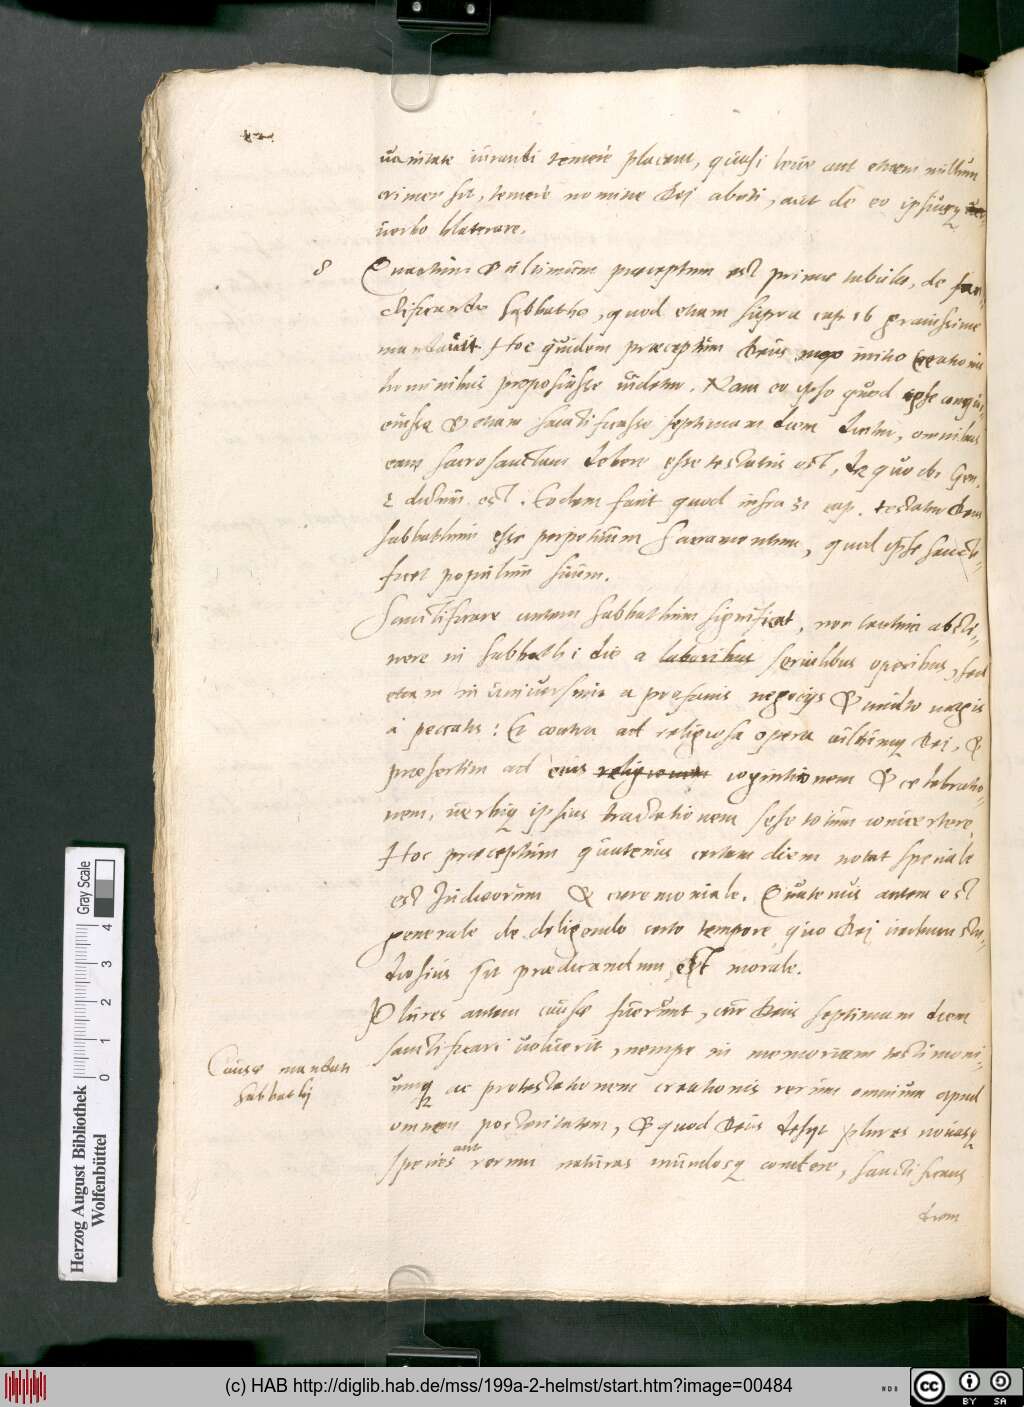 uanitate iurandi temere placent, quasi leue aut etiam nullum
crimen sit, temere nomine Dei abuti, aut de eo ipsiusq
uerbo blaterare.
8 Quartum & ultimum praeceptum est primae tabulae, de san-
ctificando Sabbatho, quod etiam supra cap 16 grauissime
mandauit Hoc quidem praeceptum Deus initio creationis
hominibus proposuisse uidetur. Nam eo ipso quod ipse conqui-
euisse & etiam sanctificasse septimam diem dicitur, omnibus
eam sacrosanctam debere esse testatus est, de quo ibi Gen.
2 dictum est. Eodem facit quod infra 31 cap. testatur Deus
Sabbathum esse perpetuum Sacramentum, quod ipse sancti-
ficet populum suum.
Sanctificare autem Sabbathum significat, non tantum absti-
nere in Sabbathi die a laboribus seruilibus operibus, sed
etiam in uniuersum a profanis negocijs & multo magis
a peccatis: Et contra ad religiosa opera cultumq Dei, &
praesertim ad eius religionem cognitionem & celebratio-
nem, uerbiq ipsius tractationem sese totum conuertere.
Hoc praeceptum quatenus certam diem notat speciale
est Iudaeorum & caeremoniale. Quatenus autem est
generale de deligendo certo tempore quo Dei uerbum stu-
diosius sit praedicandum est morale.
Plures autem causae fuerunt, cur Deus septimam diem
sanctificari uoluerit, nempe in memoriam testimoni-
umq ac protestationem creationis rerum omnium apud
omnem posteritatem, & quod Deus desijt plures nouasq
species aut rerum naturas mundosq condere, sanctificans
diem
Causae mandati
Sabbathj
Gray Scale
0 1 2 3 4
Herzog August Bibliothek
Wolfenbüttel
(c) HAB http://diglib.hab.de/mss/199a-2-helmst/start.htm?image=00484
cc BY SA